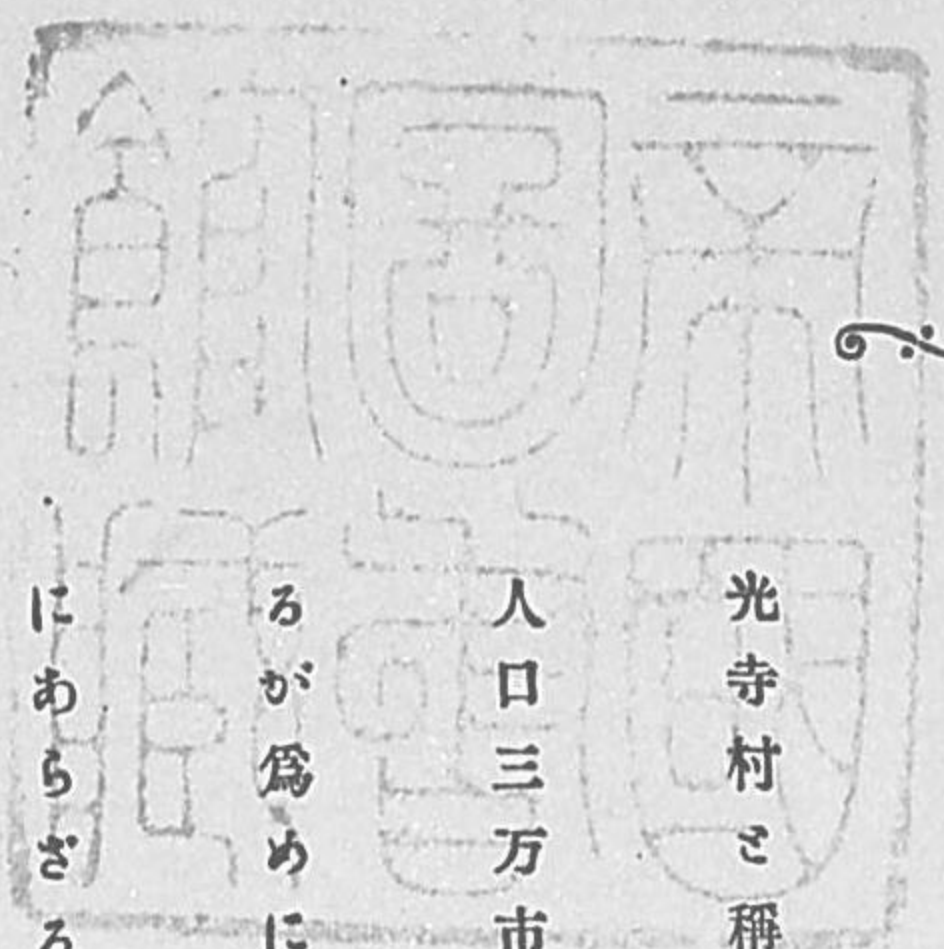 光寺村と稱
人口三万市
るが爲めに
にあらざる